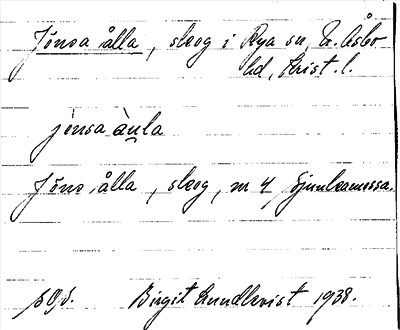 Jönsa ålla, skog i Rya sn, N. Åsbo
hd, Krist. l.
jö̀nsa àu̯la
Jöns ålla, skog, nr 4, Sjunkamossa.
sOs.
Birgit Lundkvist 1938.